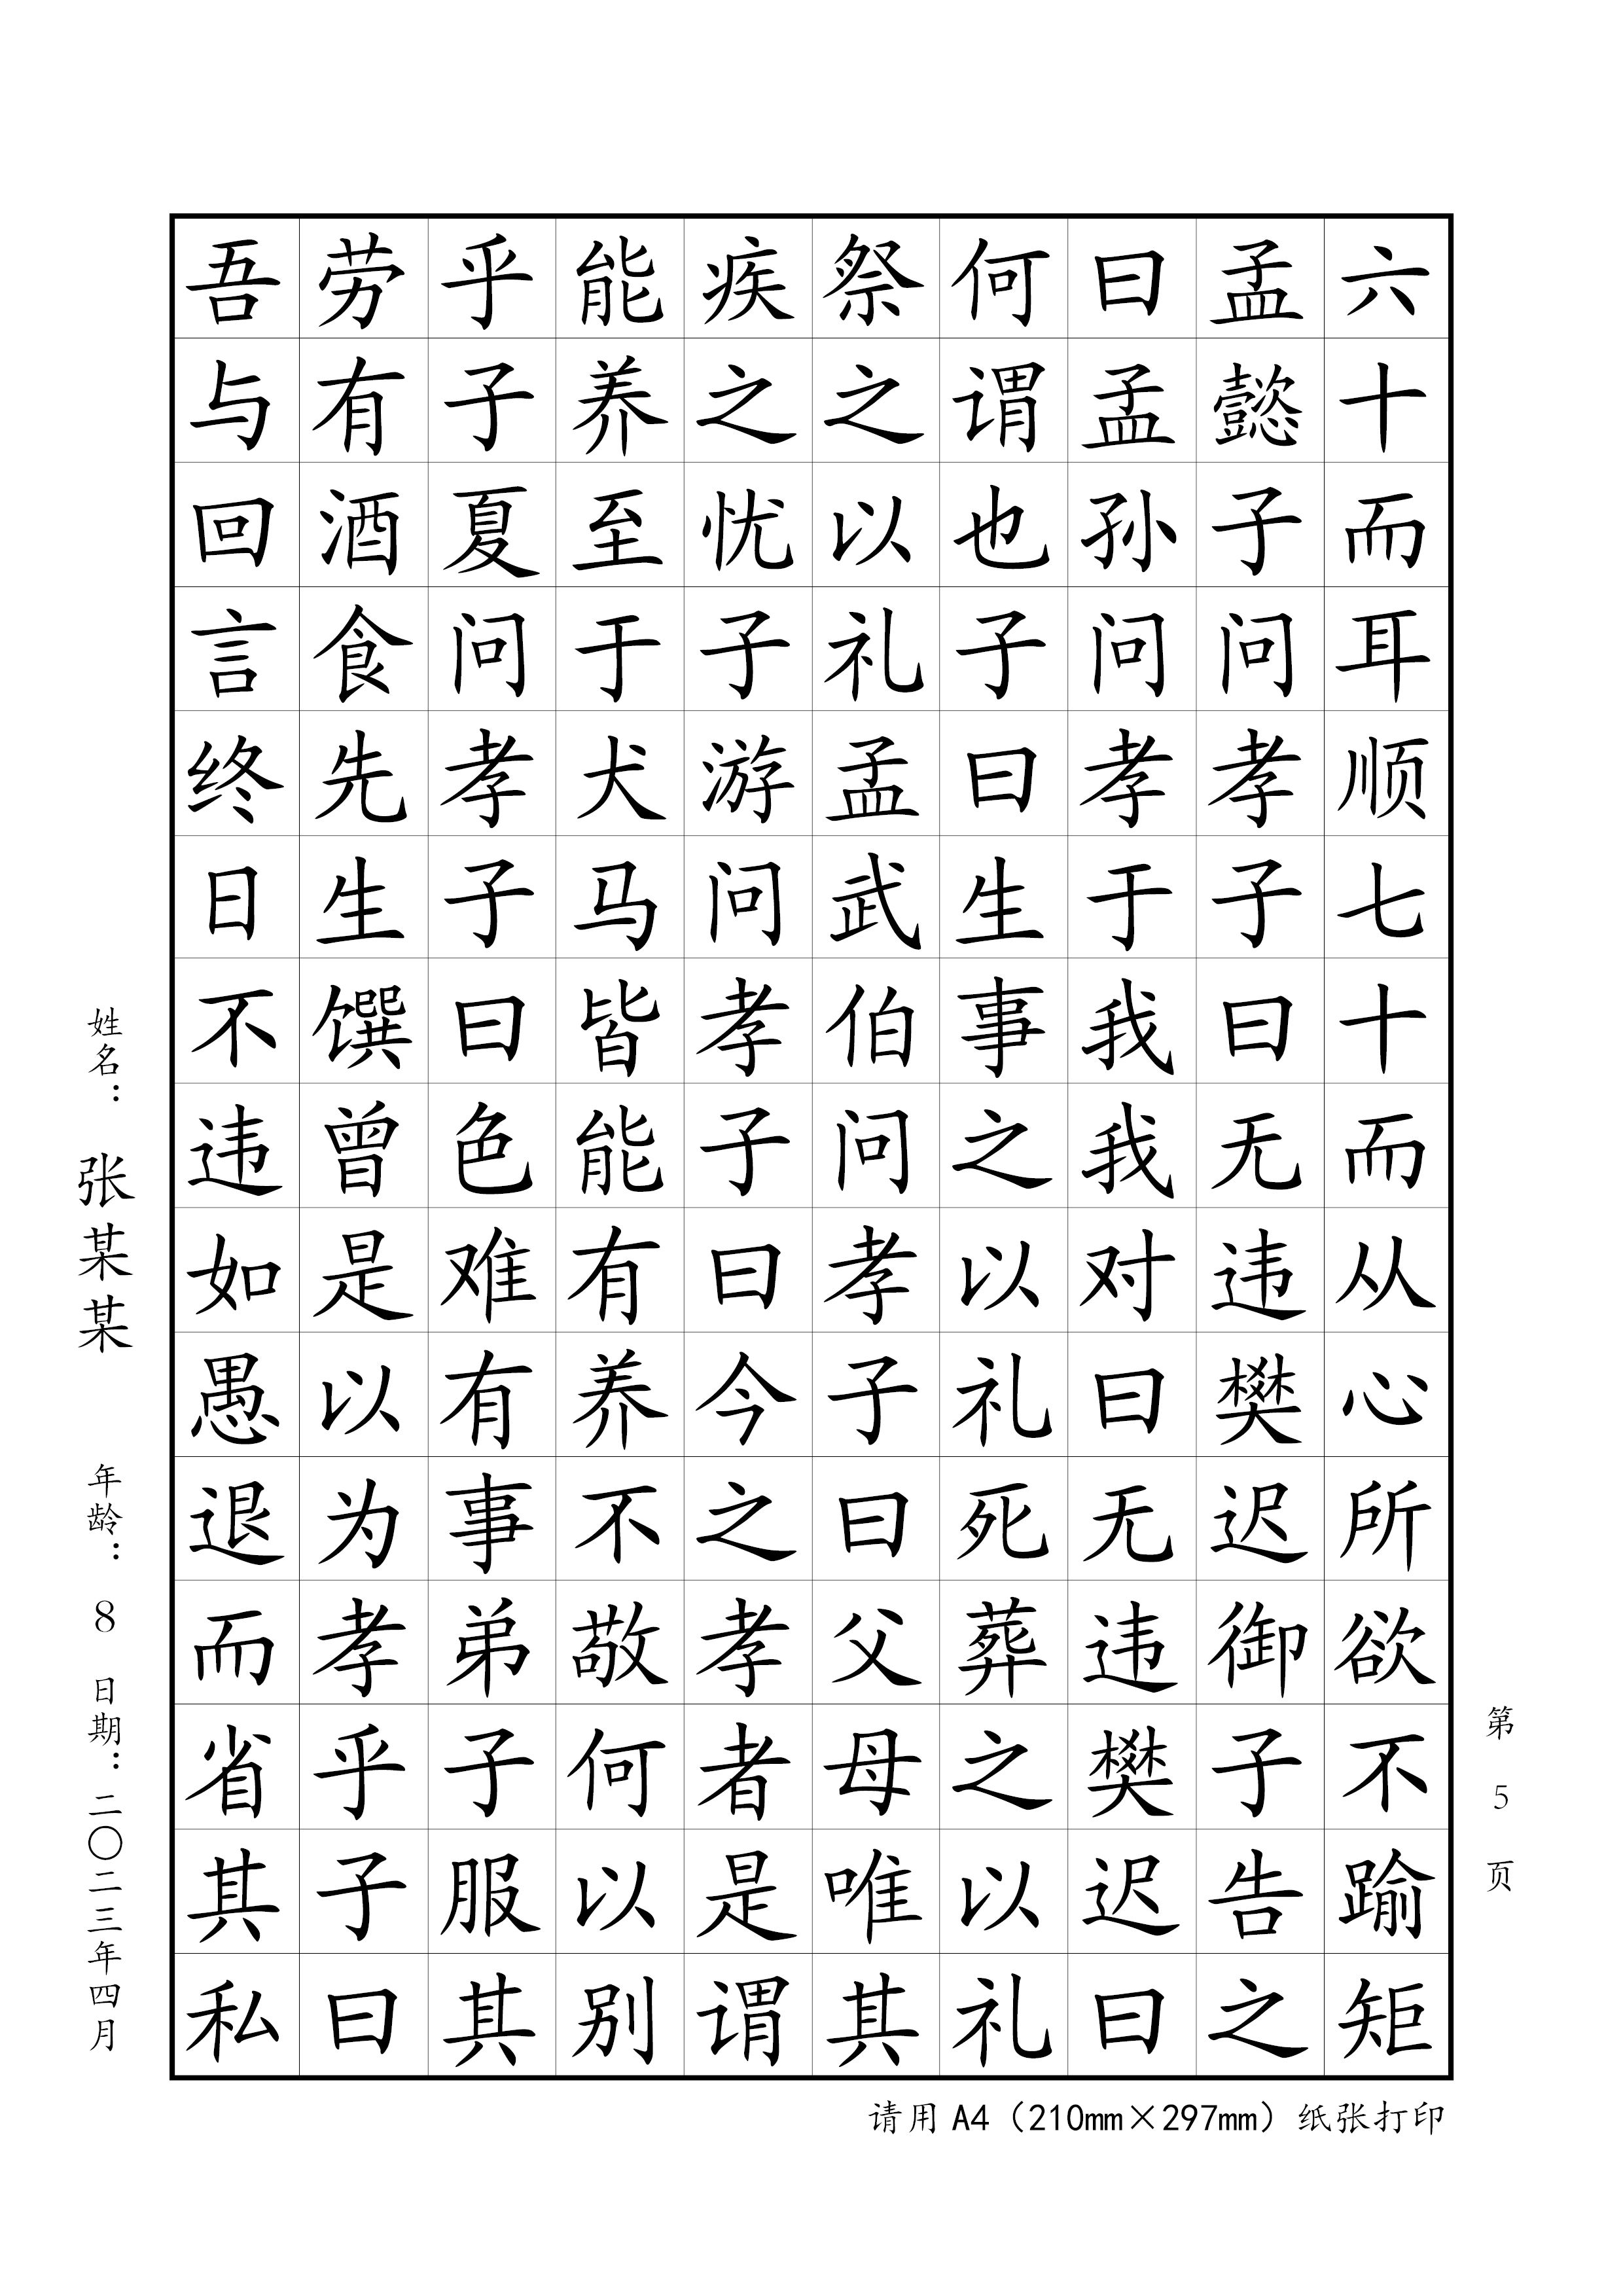 六十而耳顺七十而从心所欲不踰矩
孟懿子问孝子曰无违樊迟御子告之
曰孟孙问孝于我我对曰无违樊迟曰
何谓也子曰生事之以礼死葬之以礼
祭之以礼孟武伯问孝子曰父母唯其
疾之忧子游问孝子曰今之孝者是谓
能养至于犬马皆能有养不敬何以别
乎子夏问孝子曰色难有事弟子服其
劳有酒食先生馔曾是以为孝乎子曰
吾与回言终日不违如愚退而省其私
第5页
姓名：张某某 年龄：8 日期：二〇二三年四月
请用A4（210mm×297mm）纸张打印